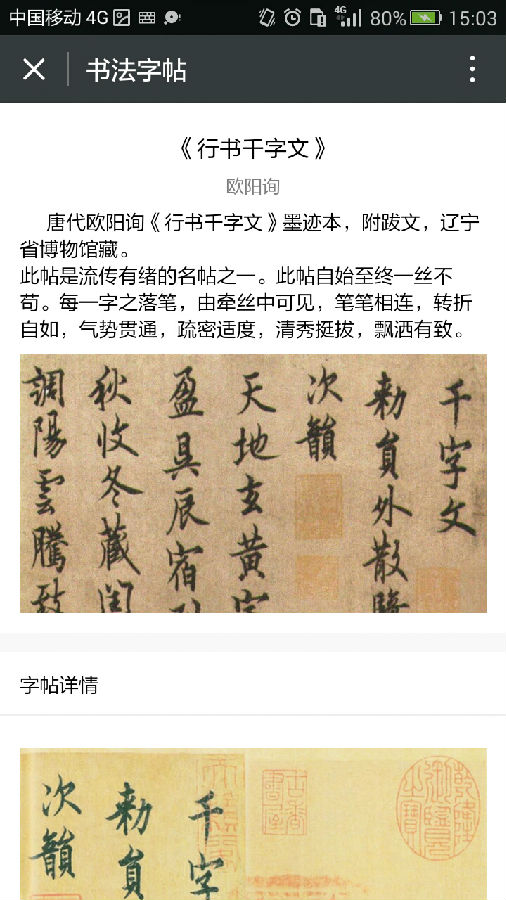 中国移动 4G 4G 80% 15:03
书法字帖
《行书千字文》
欧阳询
唐代欧阳询《行书千字文》墨迹本，附跋文，辽宁
省博物馆藏。
此帖是流传有绪的名帖之一。此帖自始至终一丝不
苟。每一字之落笔，由牵丝中可见，笔笔相连，转折
自如，气势贯通，疏密适度，清秀挺拔，飘洒有致。
千字文
勑員外散騎
次韻
天地玄黄宇
盈昃辰宿列
秋收冬藏閏
調陽雲騰致
字帖详情
千字
勑員
次韻